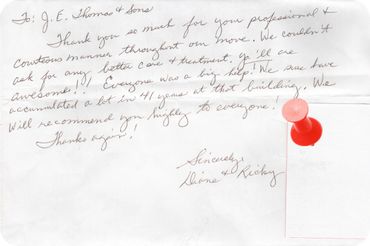 To: J. E. Thomas & Sons
Thank you so much for your professional &
courteous manner throughout our move. We couldn't
ask for any better care & treatment. Ya'll are
awesome!! Everyone was a big help! We sure have
accumulated a lot in 41 years at that building. We
will recommend you highly to everyone!
Thanks again!
Sincerely,
Diane & Ricky